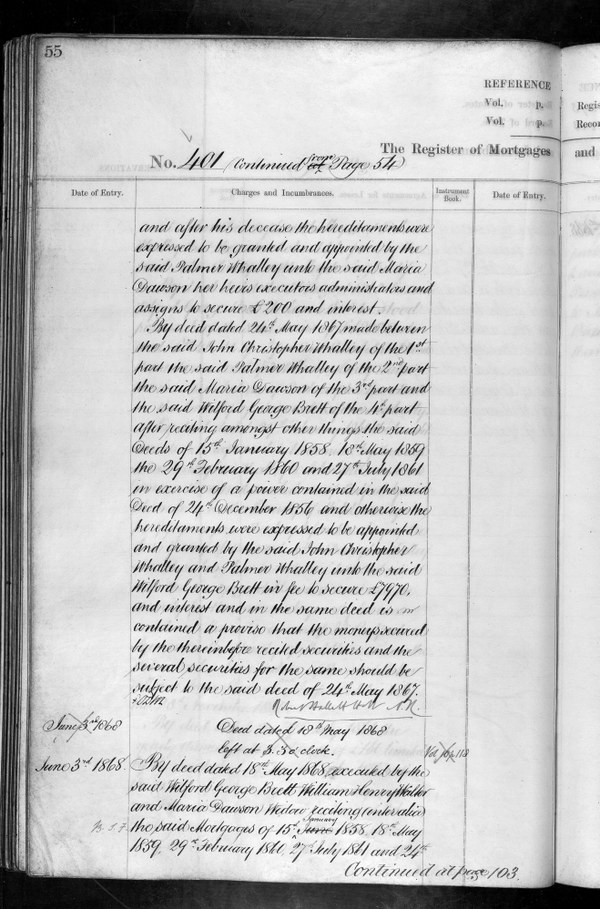 55
REFERENCE
Vol. p.
Vol. p.
The Register of Mortgages
No. 401 (Continued from Page 54)
Date of Entry. Charges and Incumbrances. Instrument Book. Date of Entry.
and after his decease the hereditaments were
expressed to be granted and appointed by the
said Palmer Whalley unto the said Maria
Dawson her heirs executors administrators and
assigns to secure £200 and interest
By deed dated 24th May 1867 made between
the said John Christopher Whalley of the 1st
part the said Palmer Whalley of the 2nd part
the said Maria Dawson of the 3rd part and
the said Wilford George Brett of the 4th part
after reciting amongst other things the said
Deeds of 15th January 1858, 18th May 1859
the 29th February 1860 and 27th July 1861
in exercise of a power contained in the said
Deed of 24th December 1856 and otherwise the
hereditaments were expressed to be appointed
and granted by the said John Christopher
Whalley and Palmer Whalley unto the said
Wilford George Brett in fee to secure £7970.
and interest and in the same deed is
contained a proviso that the moneys secured
by the thereinbefore recited securities and the
several securities for the same should be
subject to the said deed of 24th May 1867.
June 3rd 1868 Deed dated 18th May 1868
left at 3. 5 o'clock. Vol p 113
June 3rd 1868 By deed dated 18th May 1868, executed by the
said Wilford George Brett, William Henry Walker
and Maria Dawson Widow reciting (inter alia)
January
the said Mortgages of 15th June 1858, 18th May
1859, 29th February 1860, 27th July 1861 and 24th
Continued at page 103.
Regis
Recor
and